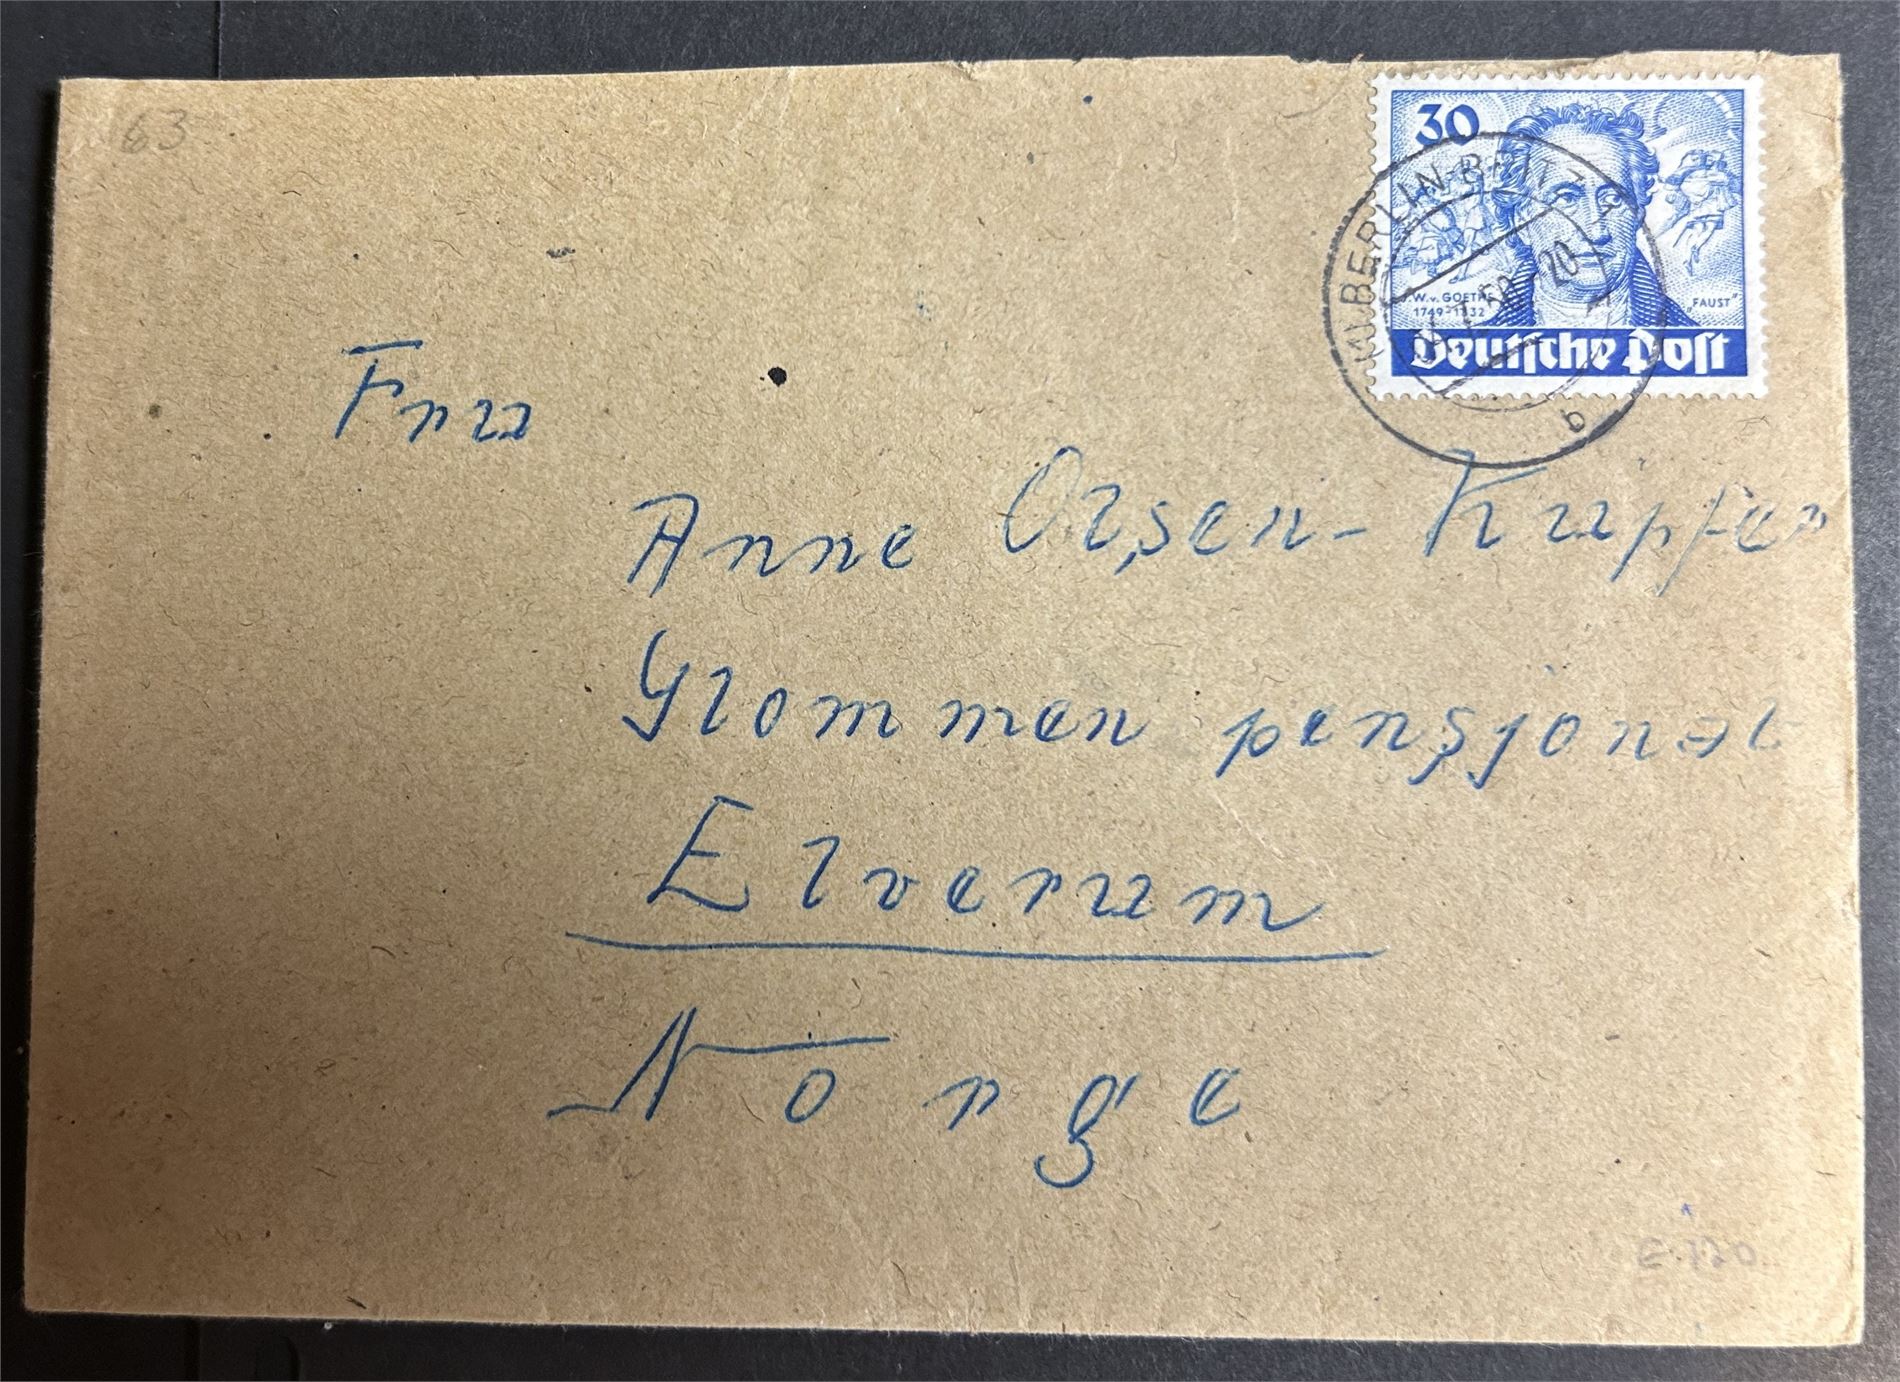 63
30
J.W.v. GOETHE
1749-1832
„FAUST"
Deutsche Post
BERLIN-BRITZ
.50-20
b
Frau
Anne Olsen-Kupfer
Glommen pensjonat
Elverum
Norge
E 120